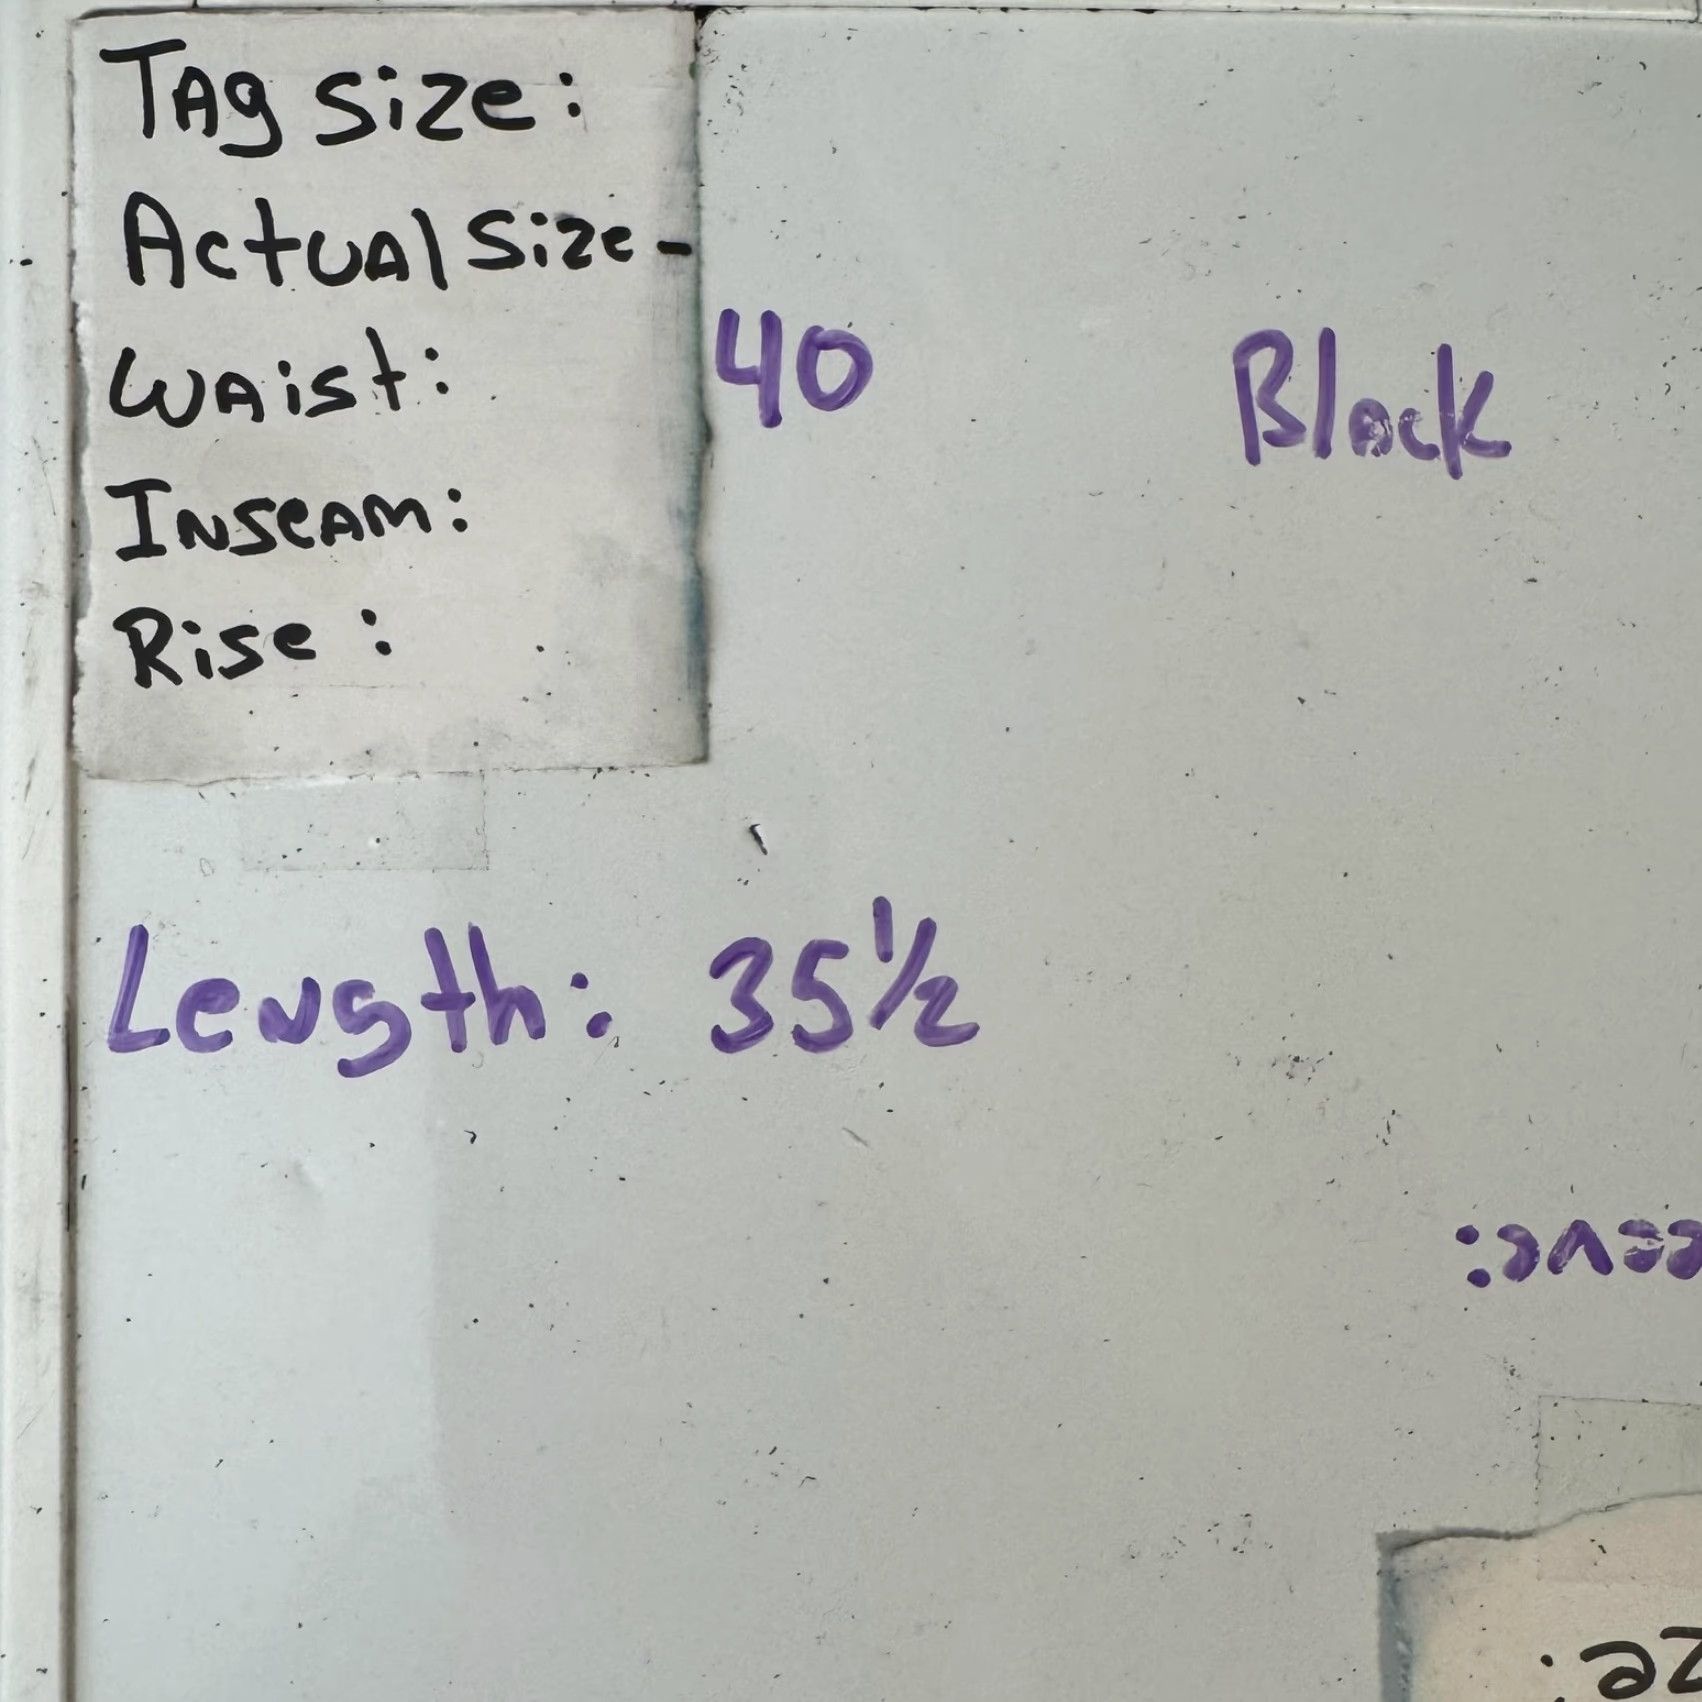 TAg Size:
Actual Size-
Waist: 40 Black
Inseam:
Rise:
Length: 35 1/2